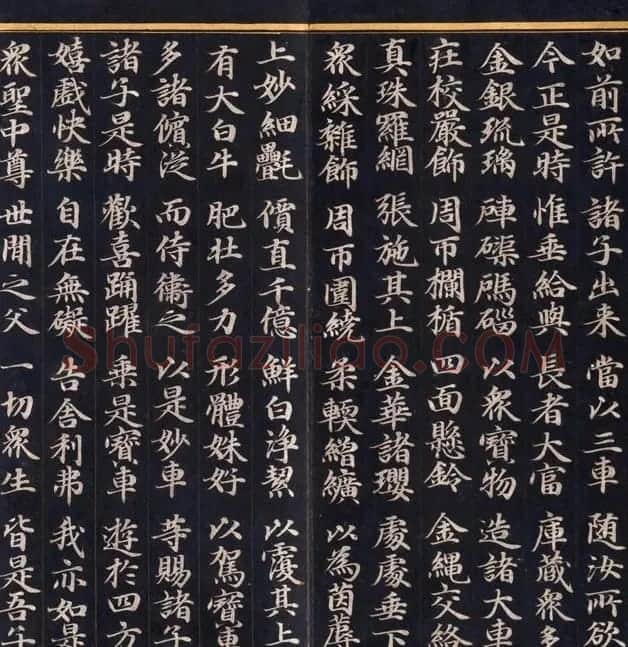 如前所許 諸子出来 當以三車 随汝所欲
今正是時 惟垂給與 長者大富 庫蔵眾多
金銀琉璃 硨磲碼碯 以眾寶物 造諸大車
莊校嚴飾 周帀欄楯 四面懸鈴 金繩交絡
真珠羅網 張施其上 金華諸瓔 處處垂下
眾綵雜飾 周帀圍繞 柔軟繒纊 以為茵蓐
上妙細㲲 價直千億 鮮白淨潔 以覆其上
有大白牛 肥壮多力 形體姝好 以駕寶車
多諸儐従 而侍衛之 以是妙車 等賜諸子
諸子是時 歡喜踊躍 乗是寶車 遊於四方
嬉戲快樂 自在無礙 告舍利弗 我亦如是
眾聖中尊 世間之父 一切眾生 皆是吾子
Shufaziliao.COM